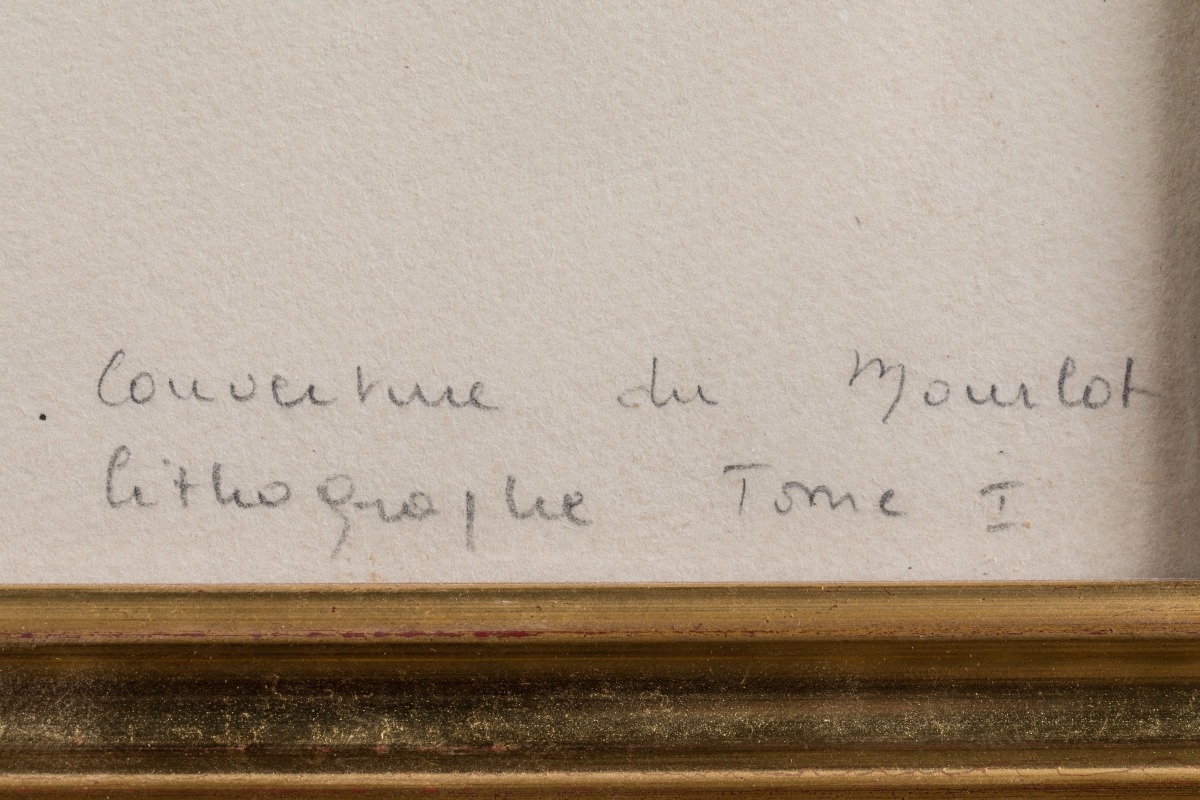 Couverture du Mourlot
lithographe Tome I